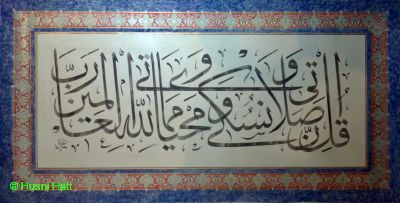 قل إن صلاتي ونسكي ومحياي ومماتي لله رب العالمين
© Husni Hatt